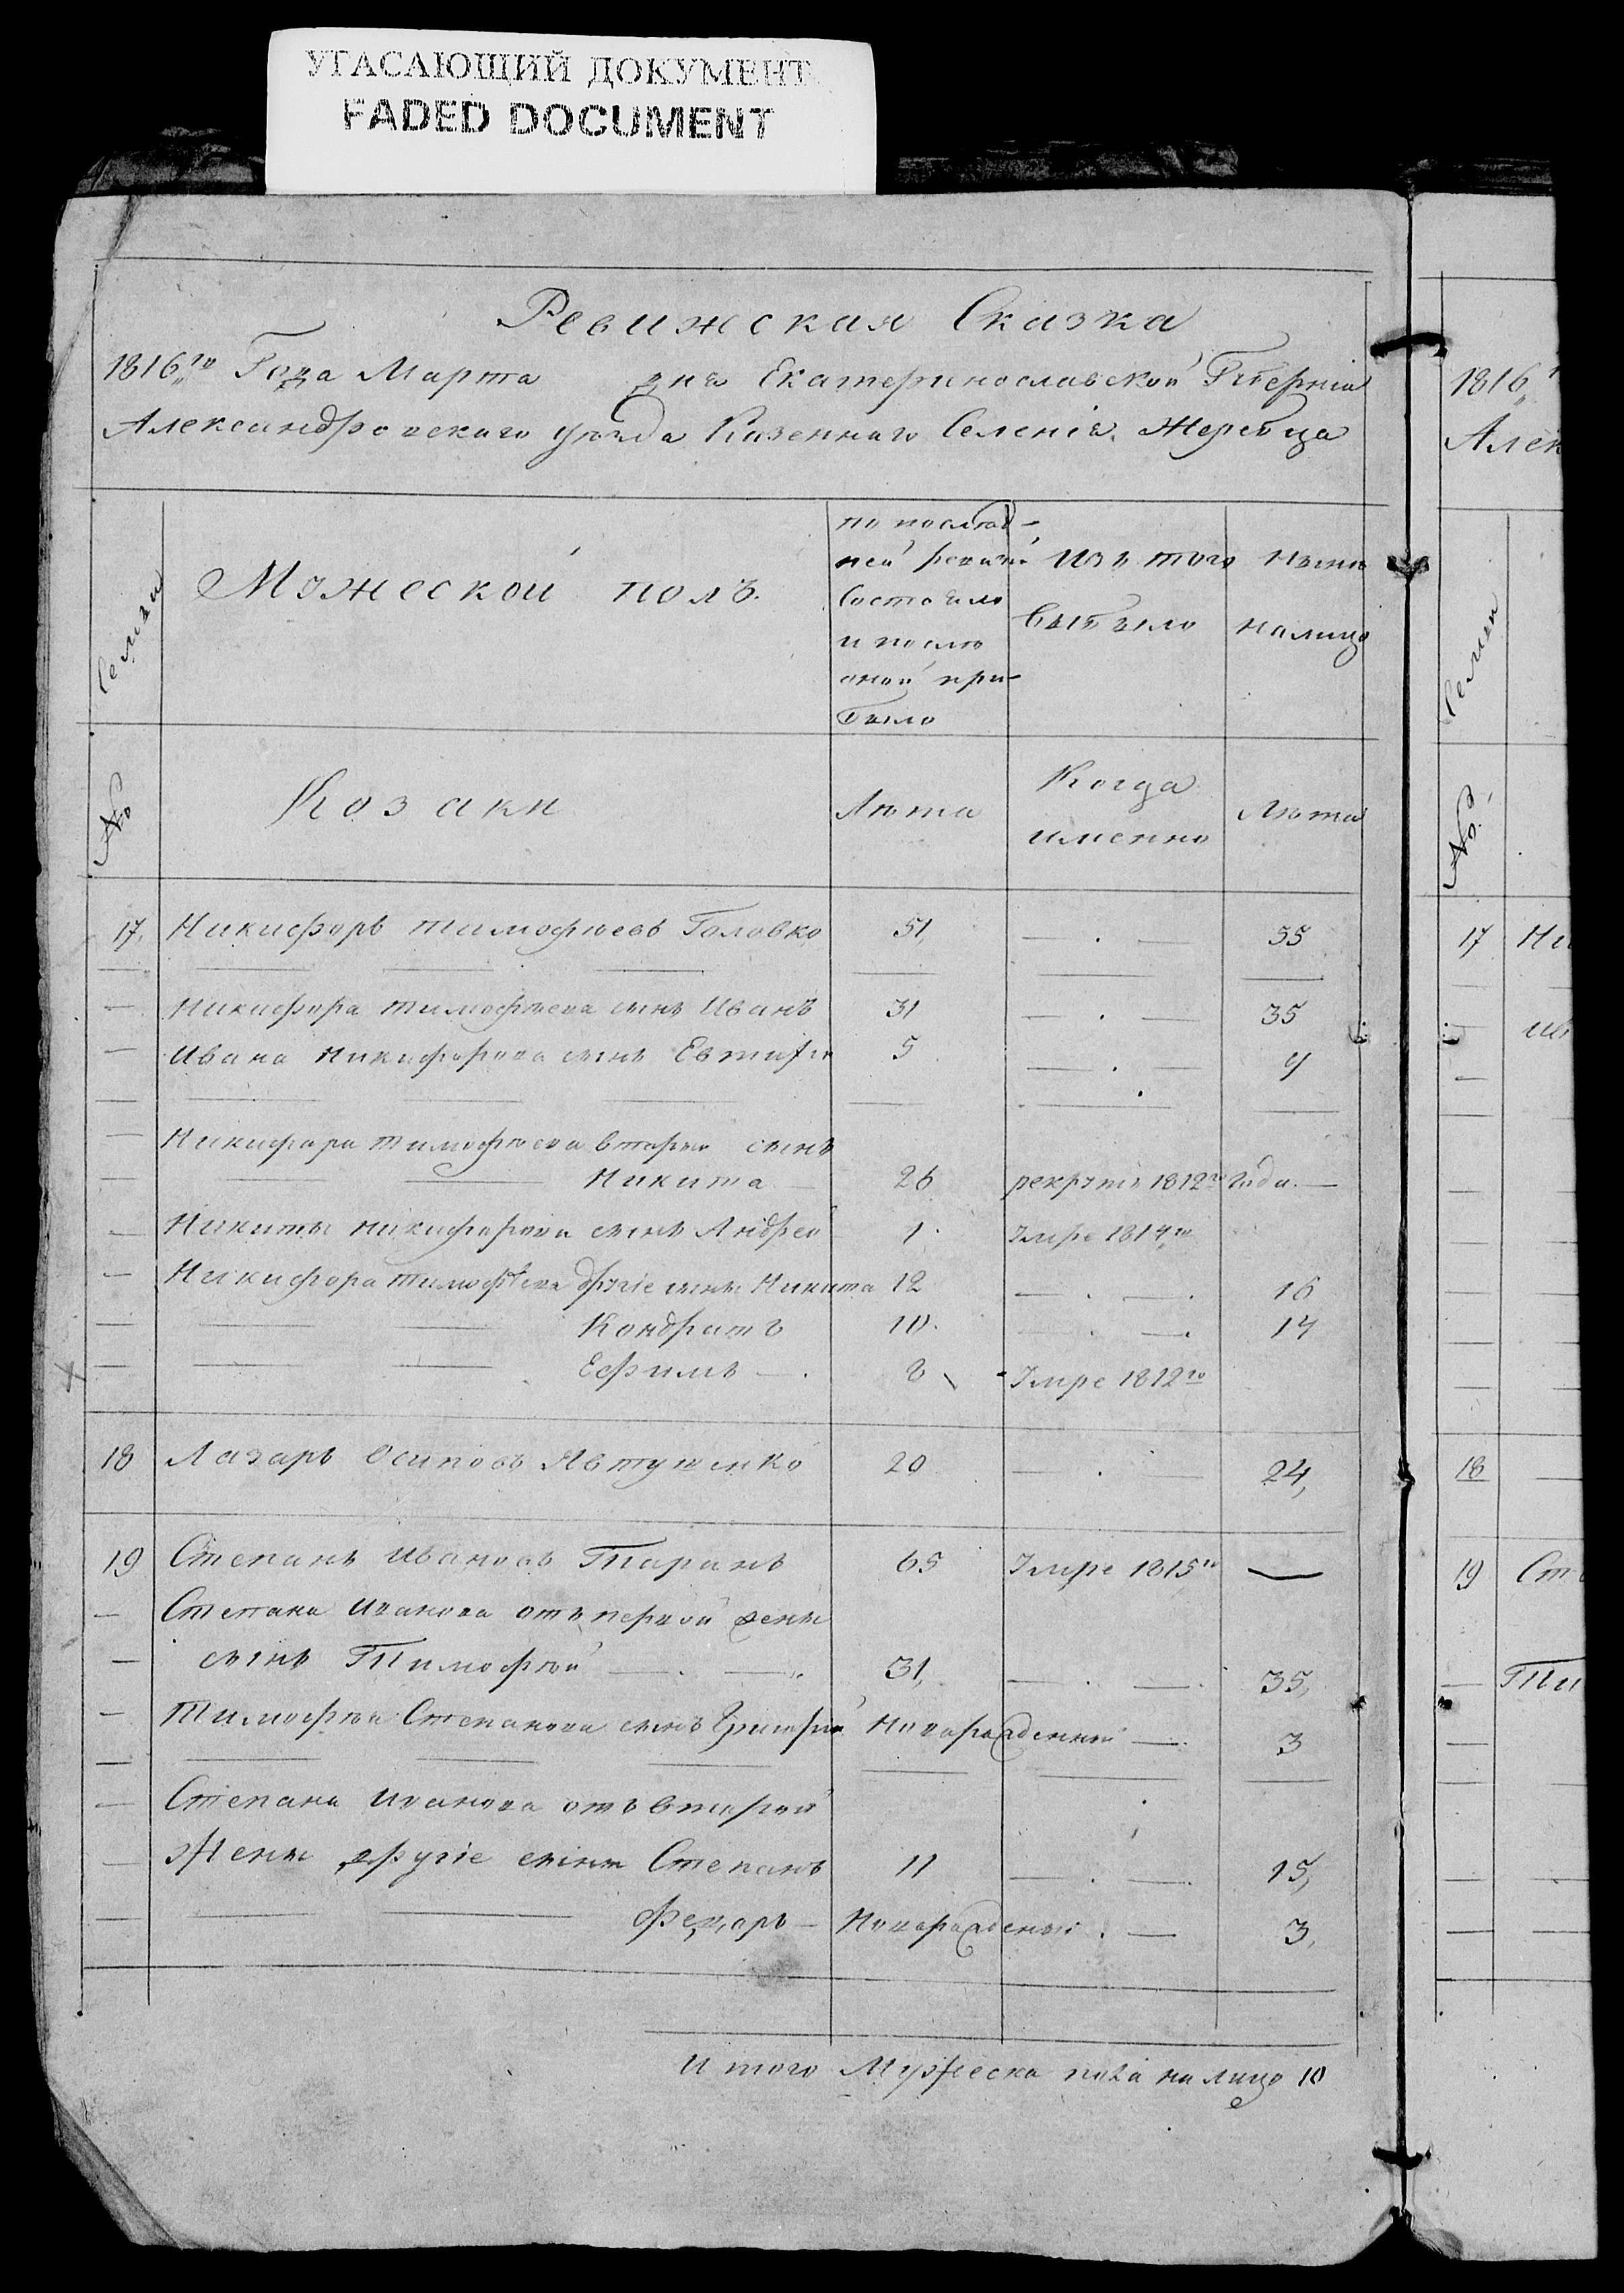 УГАСАЮЩИЙ ДОКУМЕНТ
FADED DOCUMENT
Ревижская Сказка
1816го Года Марта дня Екатеринославской Губерніи
Александровскаго уезда Казеннаго Селенія Жеребца
Семьи
Мужеской полъ.
по послѣд-
ней ревизіи
состояло
и послѣ
оной при-
было
Изъ того
выбыло
Нынѣ
налицо
№
Козаки
Лѣта
Когда
именно
Лѣта
17. Никифоръ Тимофѣевъ Головко 51, — . — 55
— Никифора Тимофѣева сынъ Иванъ 31 — . — 35
— Ивана Никифорова сынъ Евтифи 5 — . — 9
— Никифора Тимофѣева вторый сынъ
— Никита — 26 рекрутъ 1812го Года. —
— Никиты Никифорова сынъ Андрей 1. Умре 1814го
— Никифора Тимофѣева другіе сыны Никита 12 — . — . 16
— Кондратъ 10. — . — . 14
— Ефимъ — . 8 Умре 1812го
18 Лазарь Осиповъ Явтушенко 20 — . 24,
19 Степанъ Ивановъ Таранъ 65 Умре 1815го —
— Степана Иванова отъ первой жены
— сынъ Тимофѣй — . — . 31, — . — . 35,
— Тимофѣя Степанова сынъ Григорій Новорожденный — . 3
— Степана Иванова отъ второй
— жены другіе сыны Степанъ 11 — . — . 15,
— Федоръ — Новорожденный . — 3,
Итого Мужеска пола на лицо 10
1816
Алек
Семьи
№
17 Ни
Ив
18
19 Ст
Ти